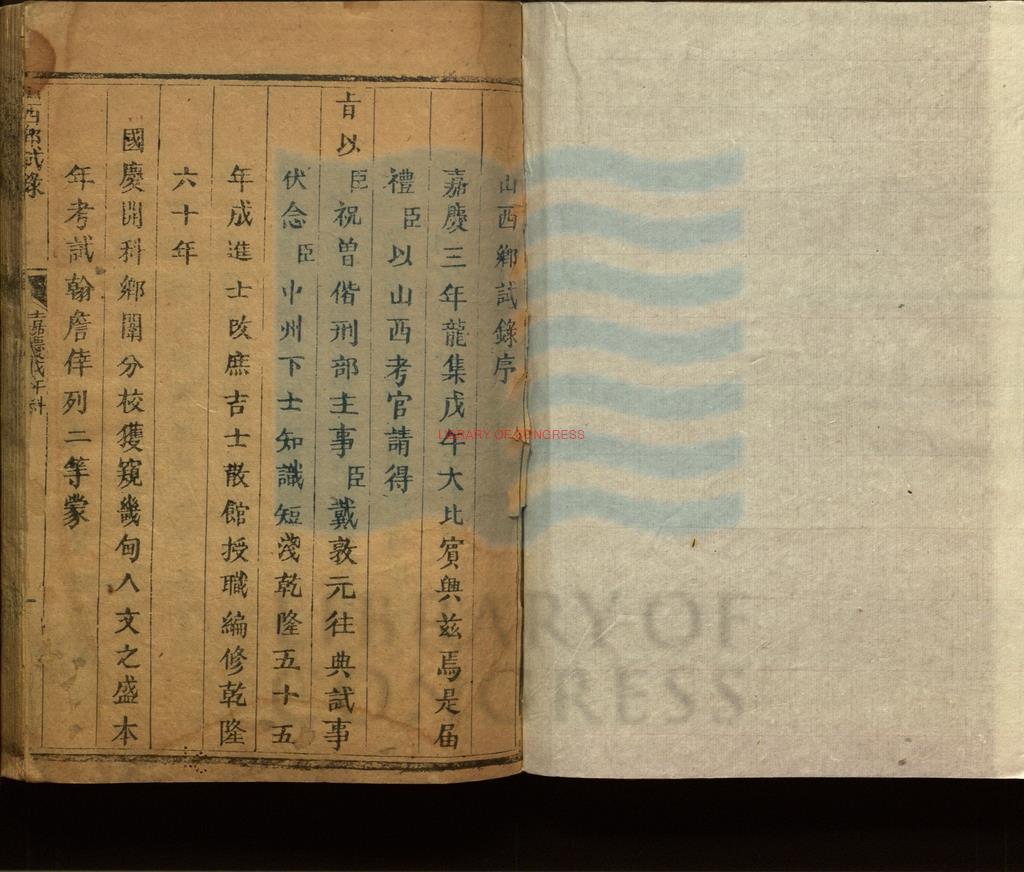 山西鄉試錄序
嘉慶三年龍集戊午大比賓興兹焉是届
禮臣以山西考官請得
旨以臣祝曾偕刑部主事臣戴敦元往典試事
伏念臣中州下士知識短淺乾隆五十五
年成進士改庶吉士散館授職編修乾隆
六十年
國慶開科鄉闈分校獲窺畿甸人文之盛本
年考試翰詹倖列二等蒙
山西鄉試錄
嘉慶戊午科
一
LIBRARY OF CONGRESS
LIBRARY OF
CONGRESS